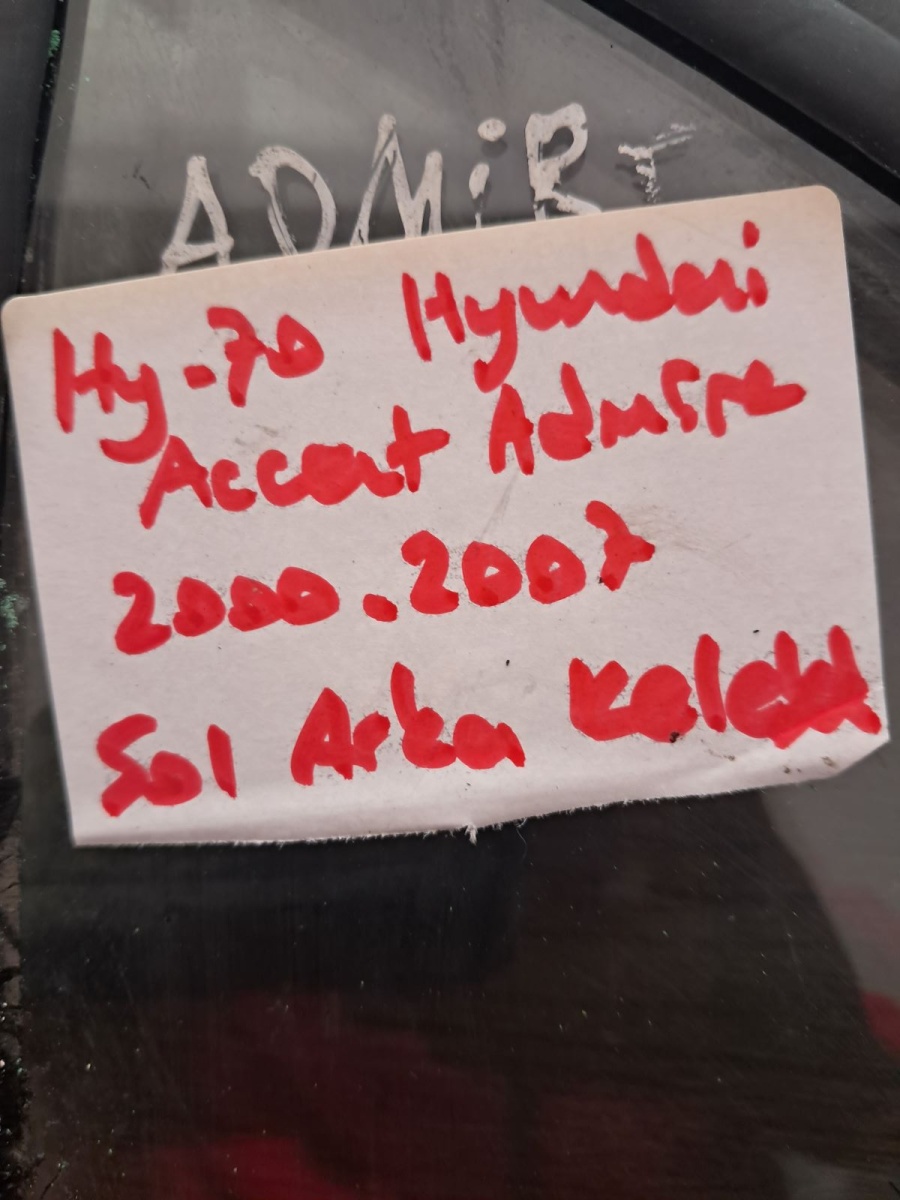 ADMİRE
Hy-70 Hyundai
Accent Admire
2000.2007
Sol Arka